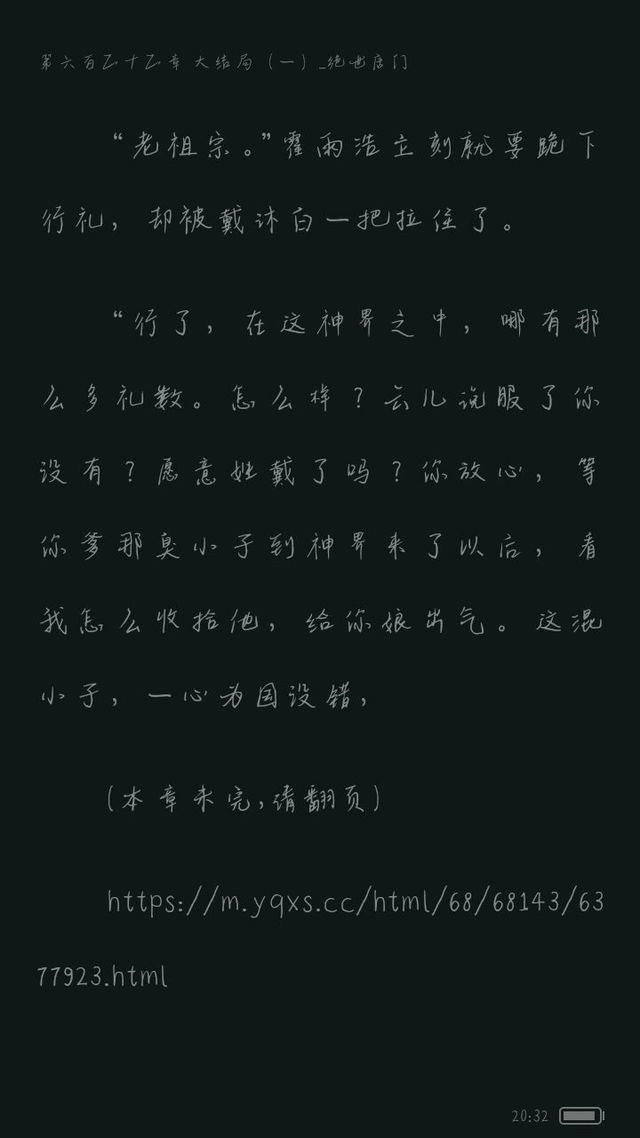 第六百五十五章 大结局（一）_绝世唐门
“老祖宗。”霍雨浩立刻就要跪下
行礼，却被戴沐白一把拉住了。
“行了，在这神界之中，哪有那
么多礼数。怎么样？云儿说服了你
没有？愿意姓戴了吗？你放心，等
你爹那臭小子到神界来了以后，看
我怎么收拾他，给你娘出气。这混
小子，一心为国没错，
(本章未完,请翻页)
https://m.yqxs.cc/html/68/68143/63
77923.html
20:32